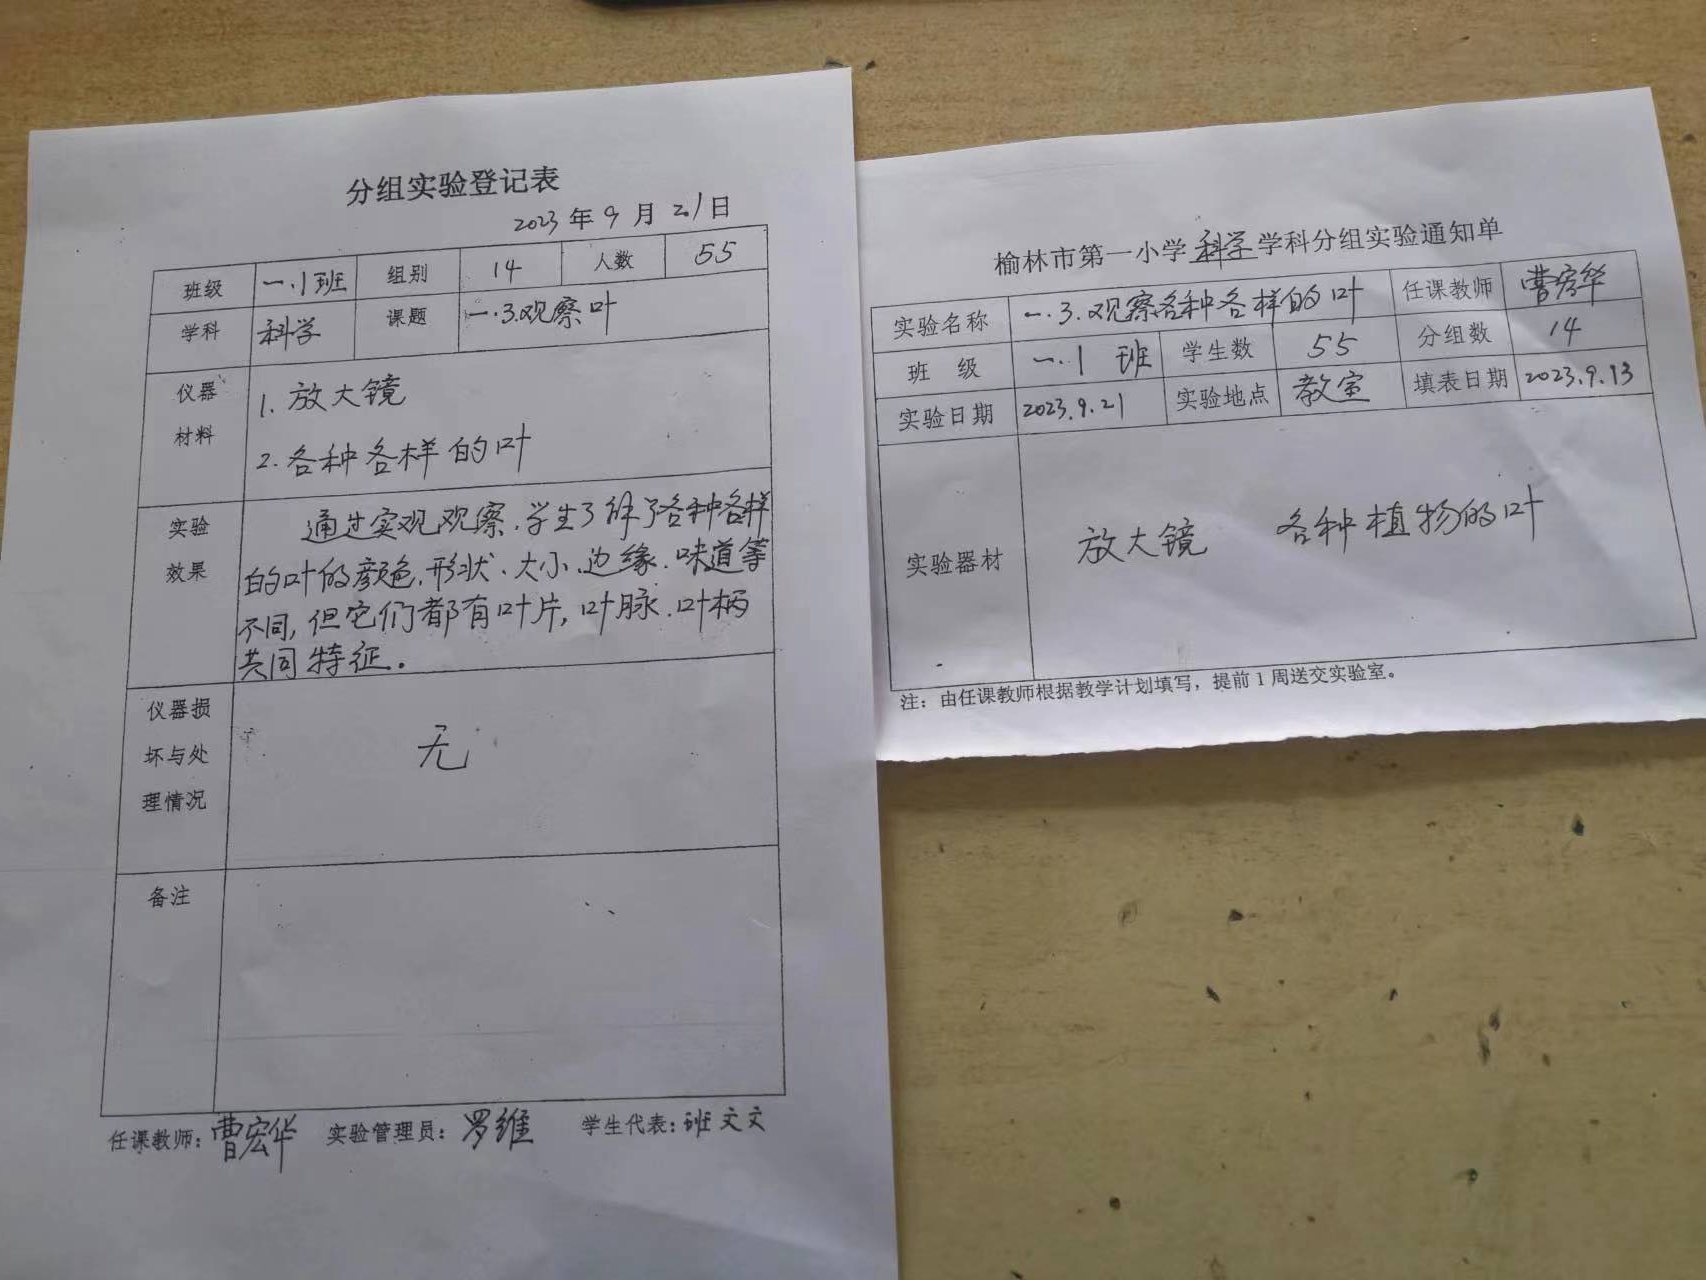 分组实验登记表
2023 年 9 月 21 日
班级 一.1班 组别 14 人数 55
学科 科学 课题 一.3.观察叶
仪器 材料
1. 放大镜
2. 各种各样的叶
实验 效果
通过实观观察,学生了解了各种各样
的叶的颜色、形状、大小、边缘、味道等
不同,但它们都有叶片,叶脉、叶柄
共同特征。
仪器损
坏与处
理情况
无
备注
任课教师:曹宏华 实验管理员:罗维 学生代表:班文文
榆林市第一小学科学学科分组实验通知单
实验名称 一.3.观察各种各样的叶 任课教师 曹宏华
班 级 一.1 班 学生数 55 分组数 14
实验日期 2023.9.21 实验地点 教室 填表日期 2023.9.13
实验器材 放大镜 各种植物的叶
注:由任课教师根据教学计划填写,提前1周送交实验室。